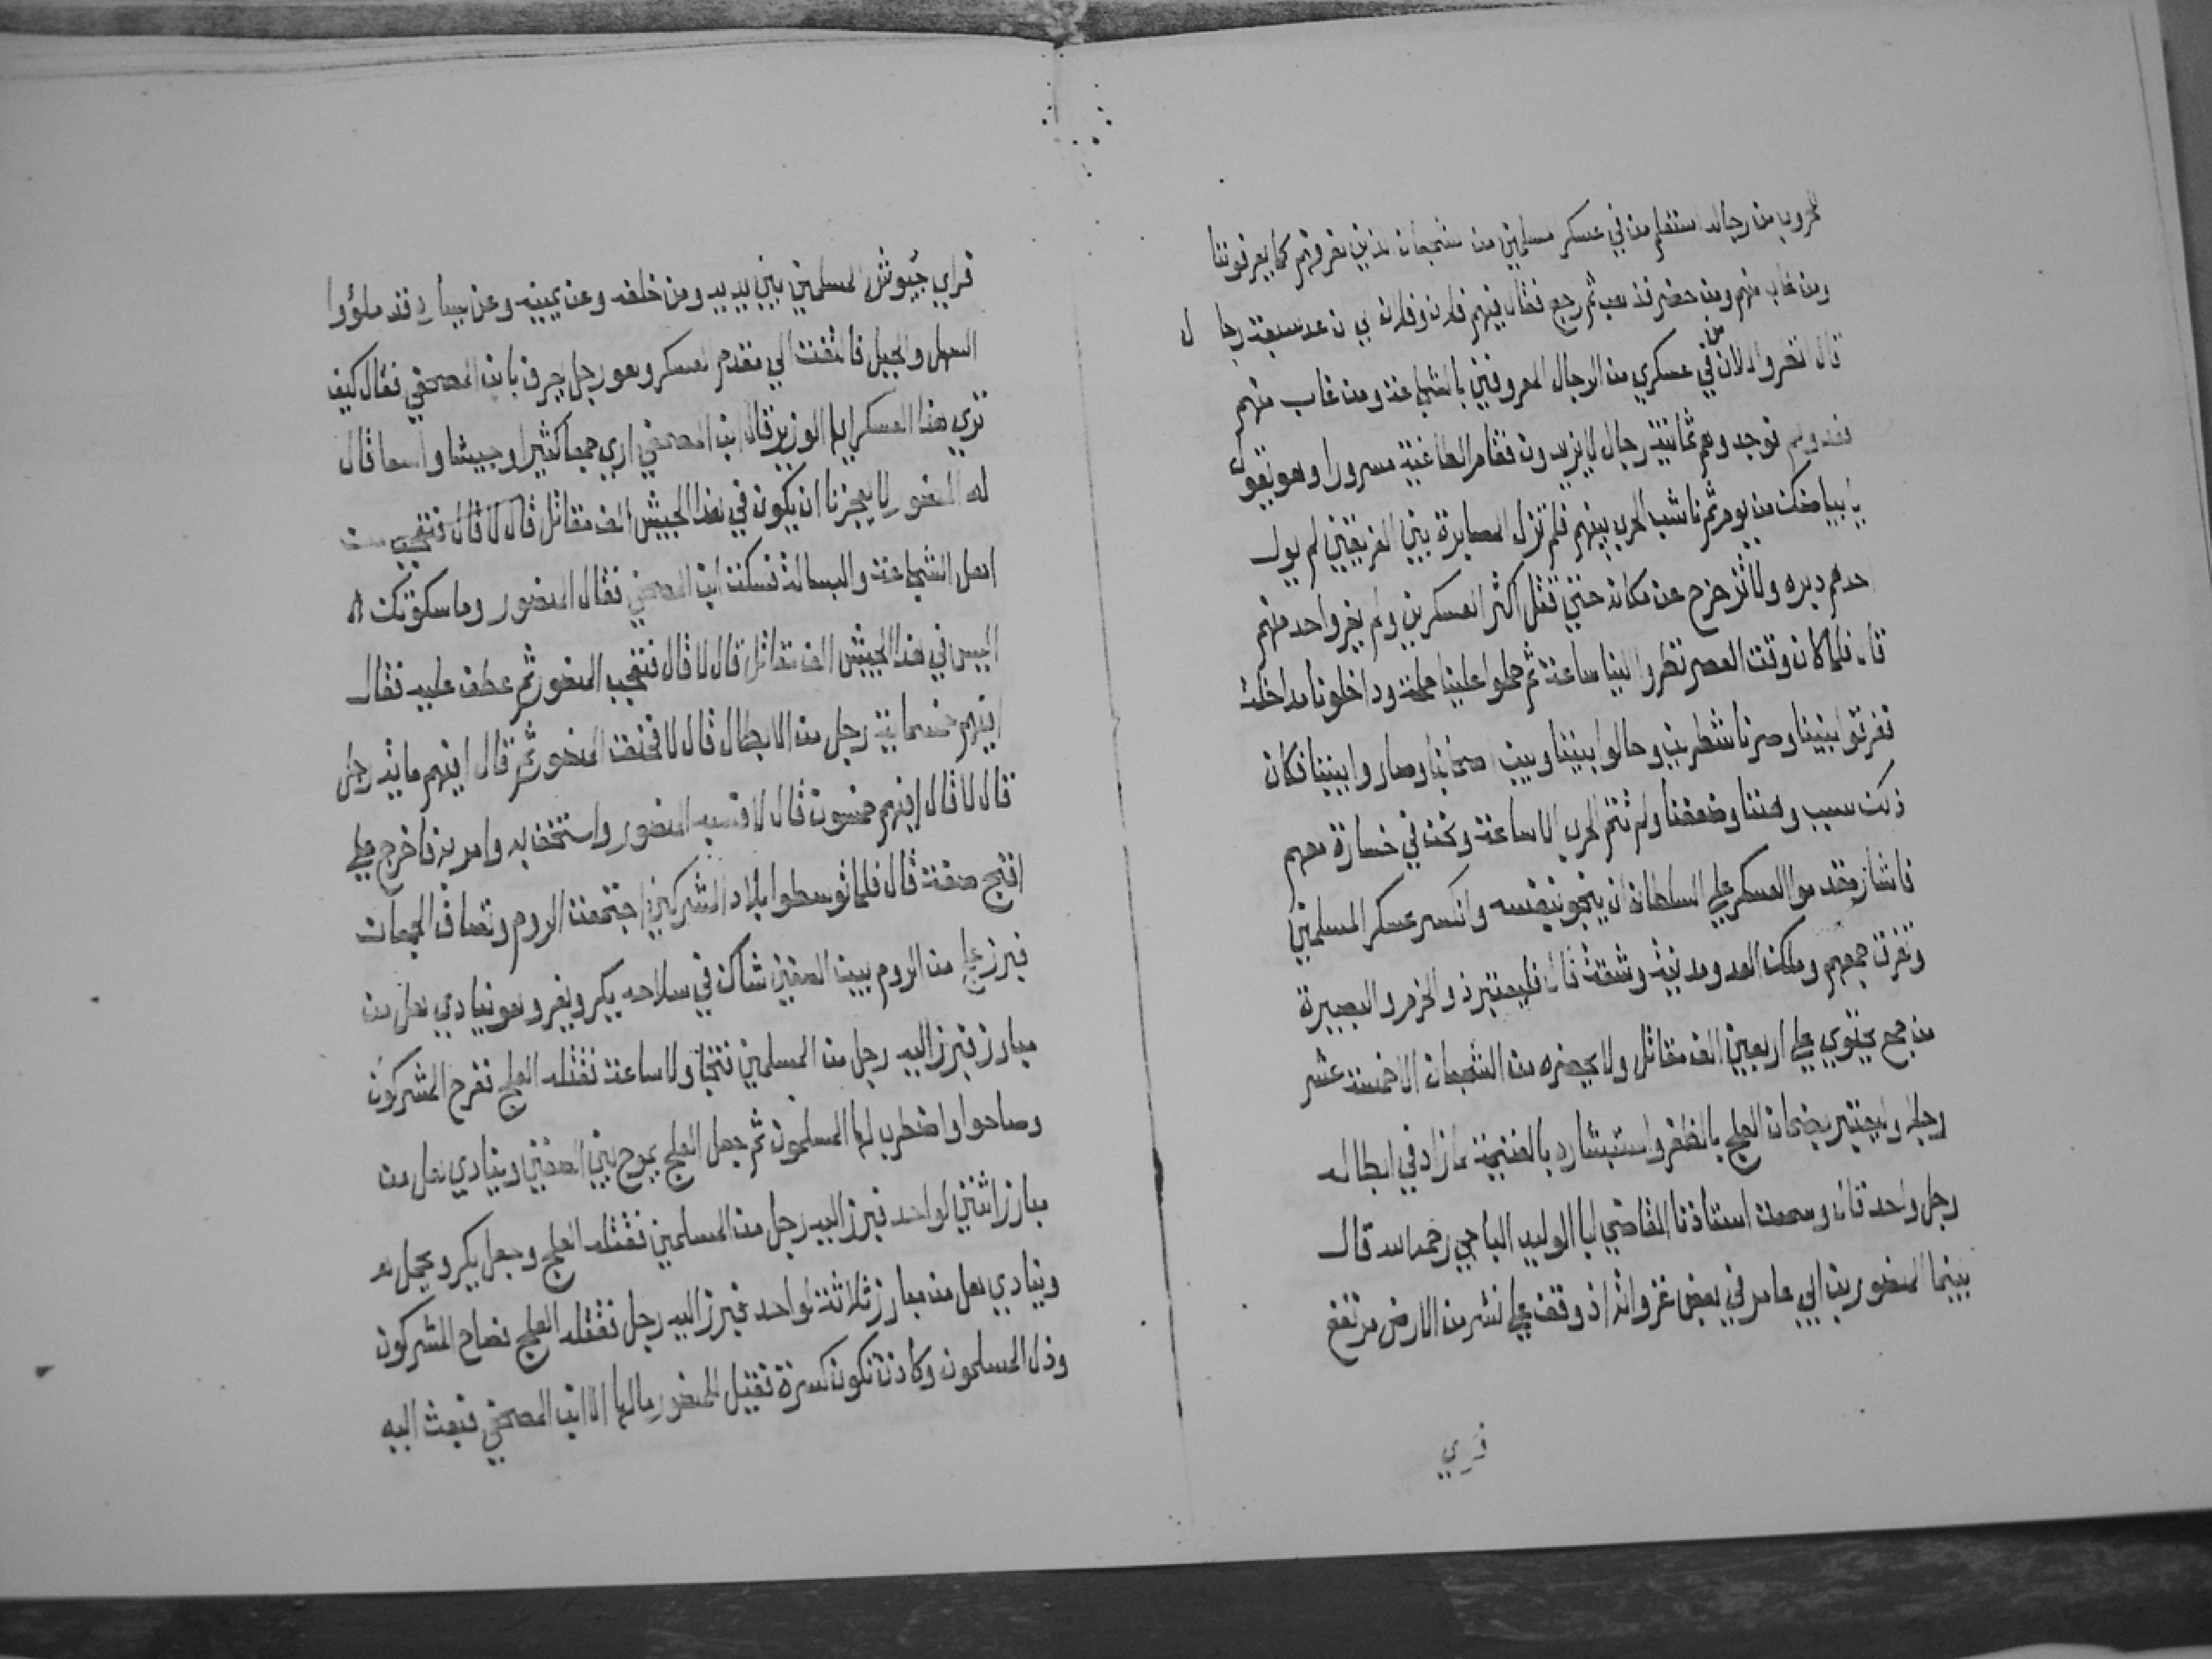 للحروب من رجاله استعلم من في عسكر مسلمين من شجعان لذين نعرفهم كما يعرفوننا
ومن غاب منهم ومن حضر فذهب ثم رجع فقال فيهم فلان وفلان بي ن عد سبعة رجا ل
قال انظروا الان من في عسكري من الرجال المعروفين بالشجاعة ومن غاب منهم
فعدوهم فوجد وهم ثمانية رجال لا يزيدون فقام الطاغية مسرورا وهو يقول
يا بياضك من يوم ثم ناشب الحرب بينهم فلم تزل المصابرة بين الفريقين لم يول
احدهم دبره ولا تزحزح عن مكانه حتي قتل اكثر العسكرين ولم يفر واحد منهم
قال فلما كان وقت العصر نظروا الينا ساعة ثم حملوا علينا حملة وداخلونا مداخلة
ففرقوا بيننا وصرنا شطرين وحالوا بيننا وبين اصحابنا وصاروا بيننا فكان
ذلك سبب وهننا وضعفنا ولم تقم الحرب الا ساعة ونحن في خسارة معهم
فاشار مقدموا العسكر علي السلطان ان ينجو بنفسه وانكسر عسكر المسلمين
وتفرق جمعهم وملك العدو مدنية وشقة قال فليعتبر ذو الحزم والبصيرة
من جمع يحتوي علي اربعين الف مقاتل ولا يحضره من الشجعان الا خمسة عشر
رجلا وليعتبر بضمان العلج بالظفر واستبشاره بالغنيمة لما زاد في ابطاله
رجل واحد قال وسمعت استاذنا القاضي ابا الوليد الباجي رحمه الله قال
بينما المنصور بن ابي عامر في بعض غزواته اذ وقف علي نشر من الارض مرتفع
فري
فراي جيوش المسلمين بين يديه ومن خلفه وعن يمينه وعن يساره قد ملؤوا
السهل والجبل فالتفت الي مقدم العسكر وهو رجل يعرف بابن المصحفي فقال كيف
تري هذا العسكر ايها الوزير قال ابن المصحفي اري جمعا كثيرا وجيشا واسعا قال
له المنصور لا يعجزنا ان يكون في هذا الجيش الف مقاتل قال لا قال فتعجب من
اهل الشجاعة والبسالة فسكت ابن المصحفي فقال المنصور وما سكوتك ا
اليس في هذا الجيش الف مقاتل قال لا قال فتعجب المنصور ثم عطف عليه فقال
افيهم خمسماية رجل من الابطال قال لا فحنق المنصور ثم قال افيهم ماية رجل
قال لا قال افيهم خمسون قال لا فسبه المنصور واستخف به وامر به فاخرج علي
اقبح صفة قال فلما توسطوا بلاد المشركين اجتمعت الروم وتصاف الجمعان
فبرز علج من الروم بين الصفين شاك في سلاحه يكر ويفر وهو ينادي هل من
مبارز فبرز اليه رجل من المسلمين فتجاولا ساعة فقتله العلج ففرح المشركون
وصاحوا واضطرب لها المسلمون ثم جعل العلج يموج بين الصفين وينادي هل من
مبارز اثنين لواحد فبرز اليه رجل من المسلمين فقتله العلج وجعل يكر ويحمل
وينادي هل من مبارز ثلاثة لواحد فبرز اليه رجل فقتله العلج فصاح المشركون
وذل المسلمون وكادت تكون كسرة فقيل للمنصور مالها الا ابن المصحفي فبعث اليه